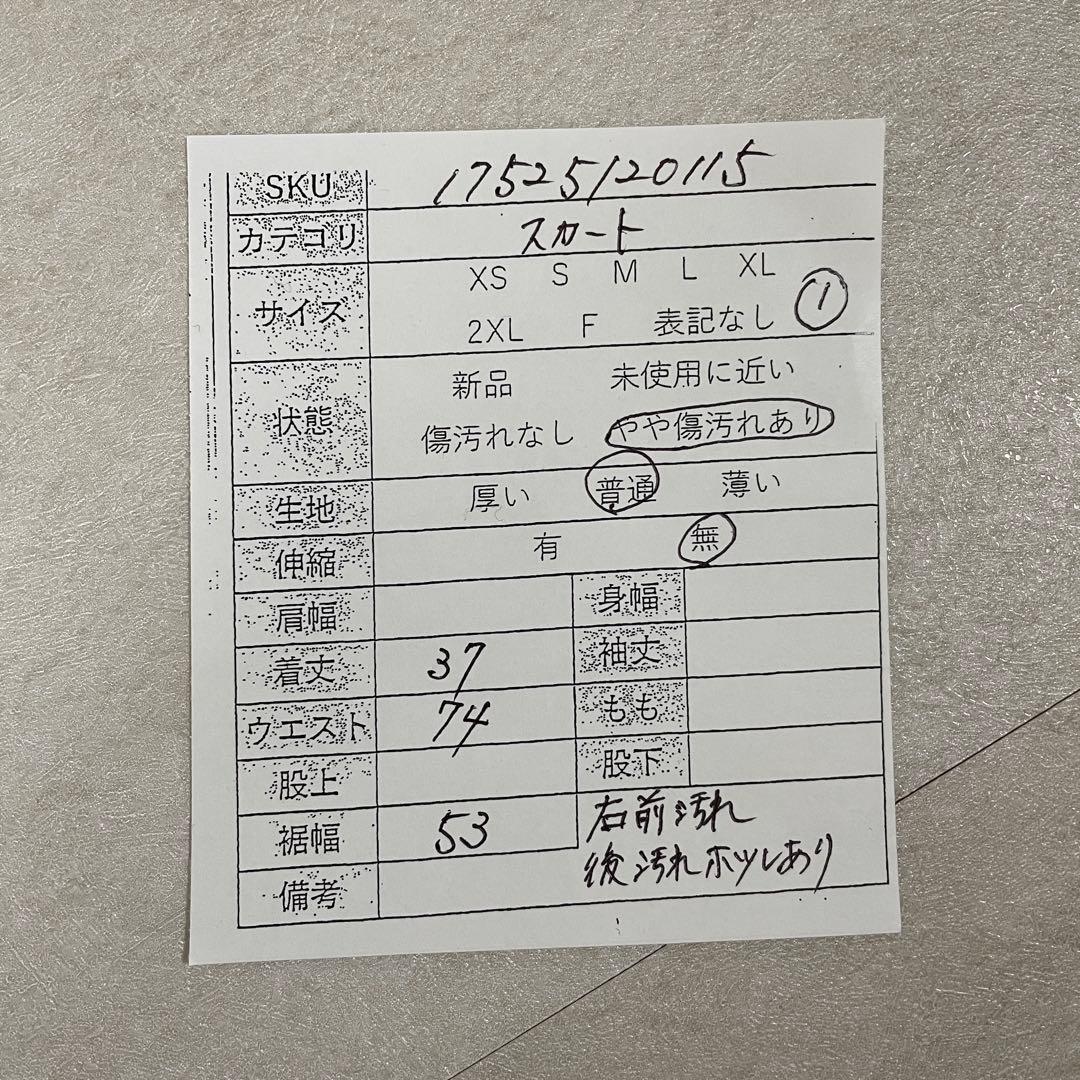 SKU 17525120115
カテゴリ スカート
サイズ XS S M L XL
2XL F 表記なし 1
状態 新品 未使用に近い
傷汚れなし やや傷汚れあり
生地 厚い 普通 薄い
伸縮 有 無
肩幅 身幅
着丈 37 袖丈
ウエスト 74 もも
股上 股下
裾幅 53 右前汚れ
後汚れホツレあり
備考